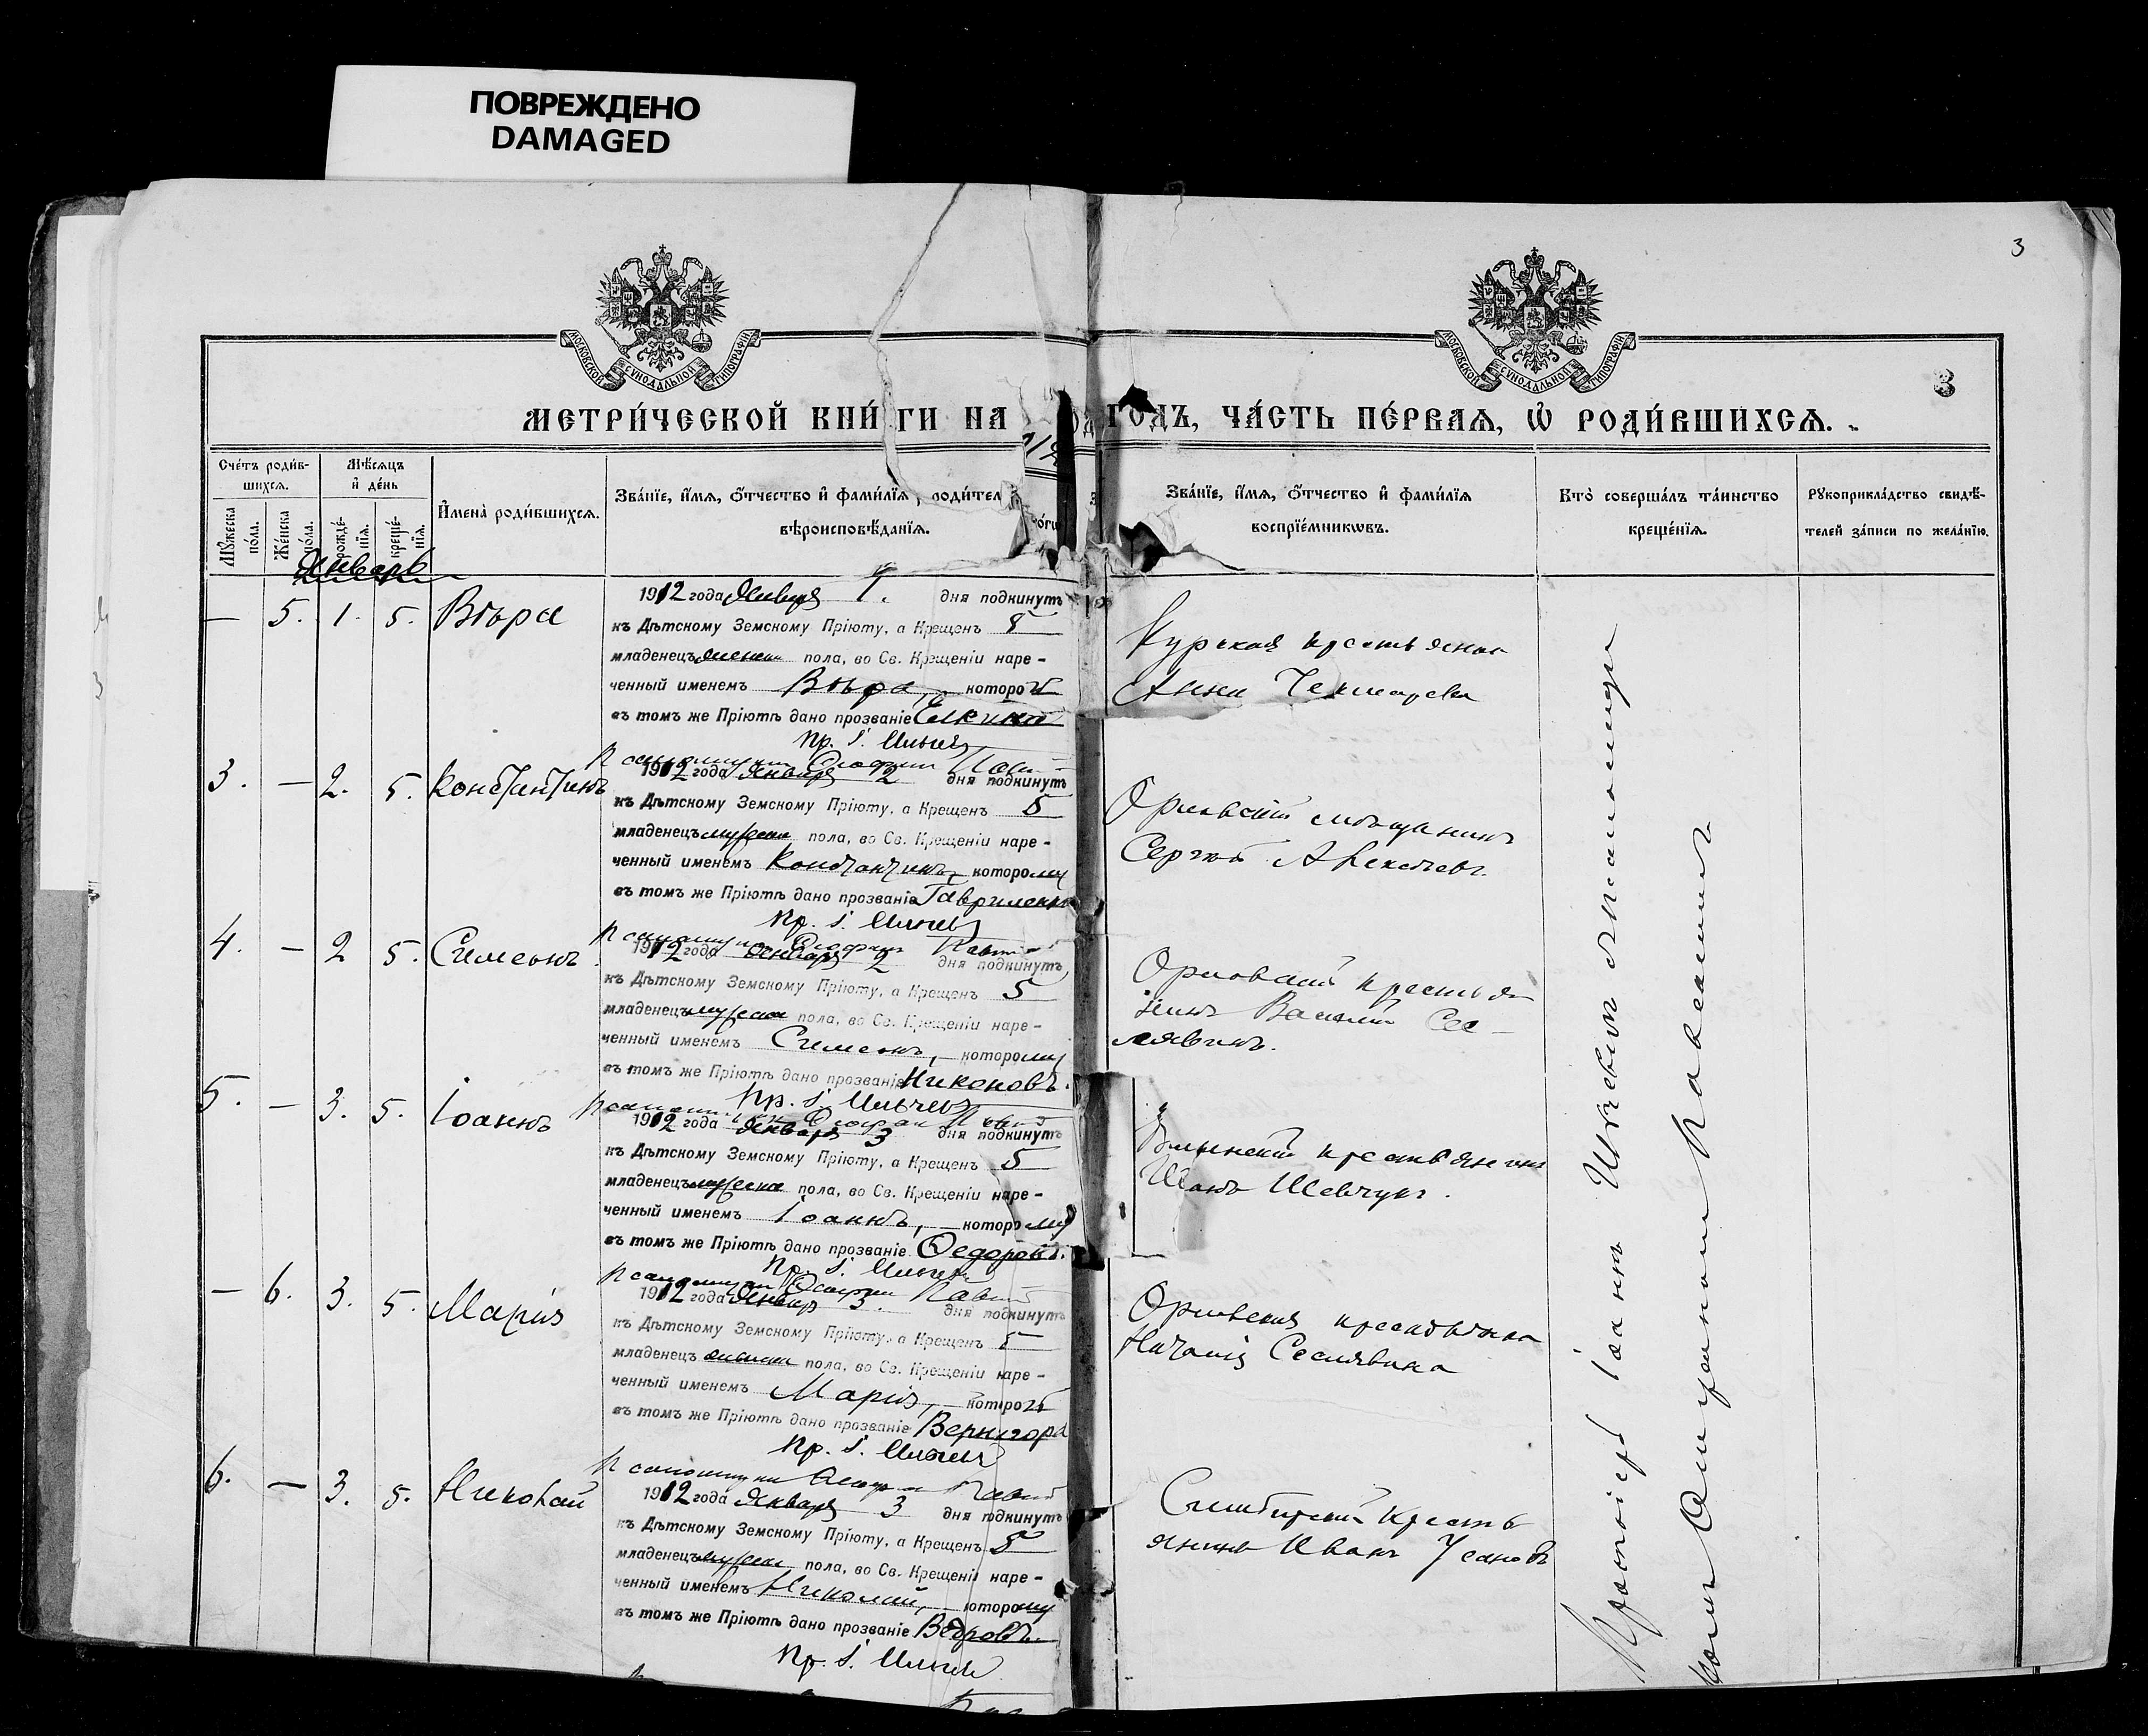 ПОВРЕЖДЕНО
DAMAGED
3
МОСКОВСКОЙ СѴНОДАЛЬНОЙ ТИПОГРАФІИ.
МОСКОВСКОЙ СѴНОДАЛЬНОЙ ТИПОГРАФІИ.
3
МЕТРИ́ЧЕСКОЙ КНИ́ГИ НА ГОДЪ, ЧА́СТЬ ПЕ́РВАЯ, Ѡ РОДИ́ВШИХСЯ.
Сче́тъ роди́в-
шихся.
Мѣ́сяцъ
и҆ де́нь
Мꙋ́жеска
по́ла.
Же́нска
по́ла.
рожде́-
нїя.
креще́-
нїя.
И҆мена̀ роди́вшихся.
Зва́нїе, и҆́мя, ѻ҆́тчество и҆ фами́лїя родител
вѣроисповѣ́данїя.
Зва́нїе, и҆́мя, ѻ҆́тчество и҆ фами́лїя
воспрїе́мникѡвъ.
Кто̀ соверша́лъ та́инство
креще́нїя.
Рꙋкоприкла́дство свидѣ́-
телей за́писи по жела́нїю.
Январь
— 5. 1. 5. Вѣра
1912 года Января 1. дня подкинутъ
къ Дѣтскому Земскому Пріюту, а Крещенъ 5
младенецъ женска пола, во Св. Крещеніи наре-
ченный именемъ Вѣра, которой
въ томъ же Пріютѣ дано прозваніе
Пр. І.
Курская крестьянка
Анна
3. — 2. 5. Константинъ
1912 года Января 2 дня подкинутъ
къ Дѣтскому Земскому Пріюту, а Крещенъ 5
младенецъ мужска пола, во Св. Крещеніи наре-
ченный именемъ Константинъ, которому
въ томъ же Пріютѣ дано прозваніе Гавриленко
Пр. І.
Орловскій мѣщанинъ
Сергѣй Алексѣевъ.
4. — 2 5. Симеонъ
1912 года Января 2 дня подкинутъ
къ Дѣтскому Земскому Пріюту, а Крещенъ 5
младенецъ мужска пола, во Св. Крещеніи наре-
ченный именемъ Симеонъ, которому
въ томъ же Пріютѣ дано прозваніе Никоновъ.
Пр. І.
Орловскій крестья-
нинъ Василій Сес-
лявинъ.
5. — 3. 5. Іоаннъ
1912 года Января 3 дня подкинутъ
къ Дѣтскому Земскому Пріюту, а Крещенъ 5
младенецъ мужска пола, во Св. Крещеніи наре-
ченный именемъ Іоаннъ, которому
въ томъ же Пріютѣ дано прозваніе Ѳедоровъ.
Пр. І.
Волынскій крестьянинъ
Шевчукъ.
— 6. 3. 5. Марія
1912 года Января 3. дня подкинутъ
къ Дѣтскому Земскому Пріюту, а Крещенъ 5
младенецъ женска пола, во Св. Крещеніи наре-
ченный именемъ Марія, которой
въ томъ же Пріютѣ дано прозваніе Вернигора
Пр. І.
Орловская крестьянка
Наталія Сеславина
6. — 3. 5. Николай
1912 года Января 3 дня подкинутъ
къ Дѣтскому Земскому Пріюту, а Крещенъ 5
младенецъ мужска пола, во Св. Крещеніи наре-
ченный именемъ Николай, которому
въ томъ же Пріютѣ дано прозваніе Вѣтровъ.
Пр. І.
Симбирскій кресть
янинъ Иванъ Усановъ
Протоіерей Іоаннъ